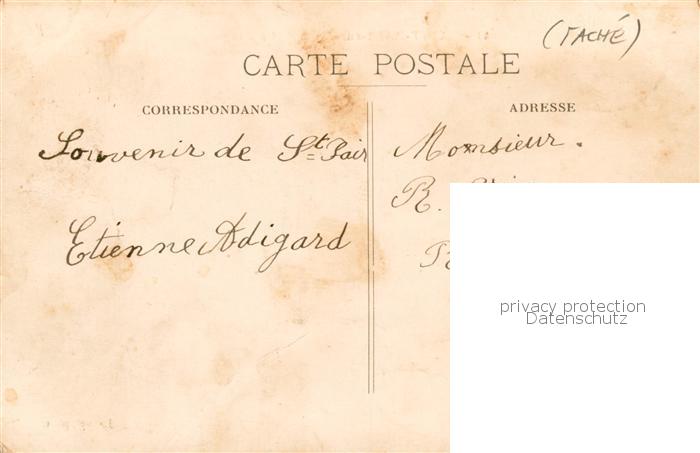 (TACHÉ)
CARTE POSTALE
CORRESPONDANCE
ADRESSE
Souvenir de St Pair
Etienne Adigard
Monsieur.
R.
privacy protection
Datenschutz